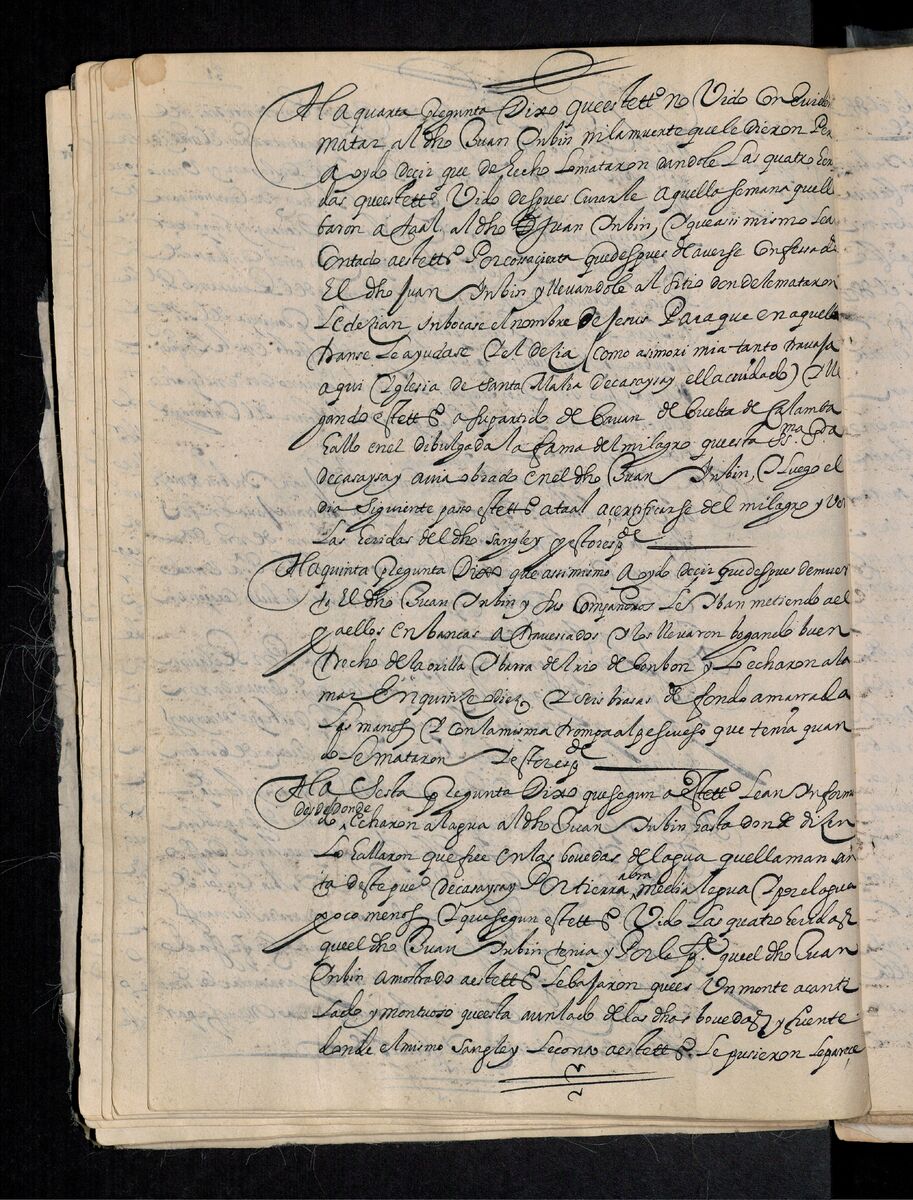 A la quarta Pregunta Dixo que este tt.º no Vido con evid
matar al dho Juan Inbin ni la muerte que le Dieron Per
a oydo decir que de hecho lo mataron dandole Las quatro eri
das que este tt.º Vido despues curarle aquella semana que lle
baron a taal al dho Juan Inbin, y que asi mismo lea
Contado a este tt.º Por cosa cierta que despues de averse confesado
El dho Juan Inbin y llevandole al sitio donde le mataron
Le decian inbocase el nombre de Jesus Para que en aquella
transe Le ayudase y el decia (como asi mori mia tanto travaja
aqui Yglesia de santa Maria de casaysay ella cuidado) Y lle
gando este tt.º a su partido de bauan de buelta de Calamba
hallo en el dibulgada la fama del milagro que esta ss.ma
de casaysay avia obrado en el dho Juan Inbin, y luego el
dia siguiente paso este tt.º a taal a certificarse del milagro y ver
Las heridas del dho sangley y esto resp.de
A la quinta Pregunta Dixo que assimismo a oydo decir que despues de muer
to El dho Juan Inbin y sus Compañeros Les iban metiendo a el
y a ellos en bancas atravesados y los llevaron bogando buen
trecho de la orilla y barra del rio de bonbon y Lo echaron a la
mar En quinze o diez y seis brasas de fondo amarrada
Las manos y con la misma trompa al pescueso que tenia quan
do Le mataron y esto resp.de
A la Sesta Pregunta Dixo que segun a este tt.º Lean Informa
desde donde
do Echaron al agua al dho Juan Inbin hasta donde dizen
Lo hallaron que fue en las bovedas del agua que llaman san
ta deste pue.º de casaysay Por tierra abra media legua y por el agua
poco menos, y que segun este tt.º Vido Las quatro heridas
que el dho Juan Inbin tenia y Por que el dho Juan
Inbin a mostrado a este tt.º Le bajaron que es un monte acanti
lado y montuoso que esta a un lado de las dhas bovedas y fuente
donde el mismo sangley a este tt.º Le pusieron Le parece